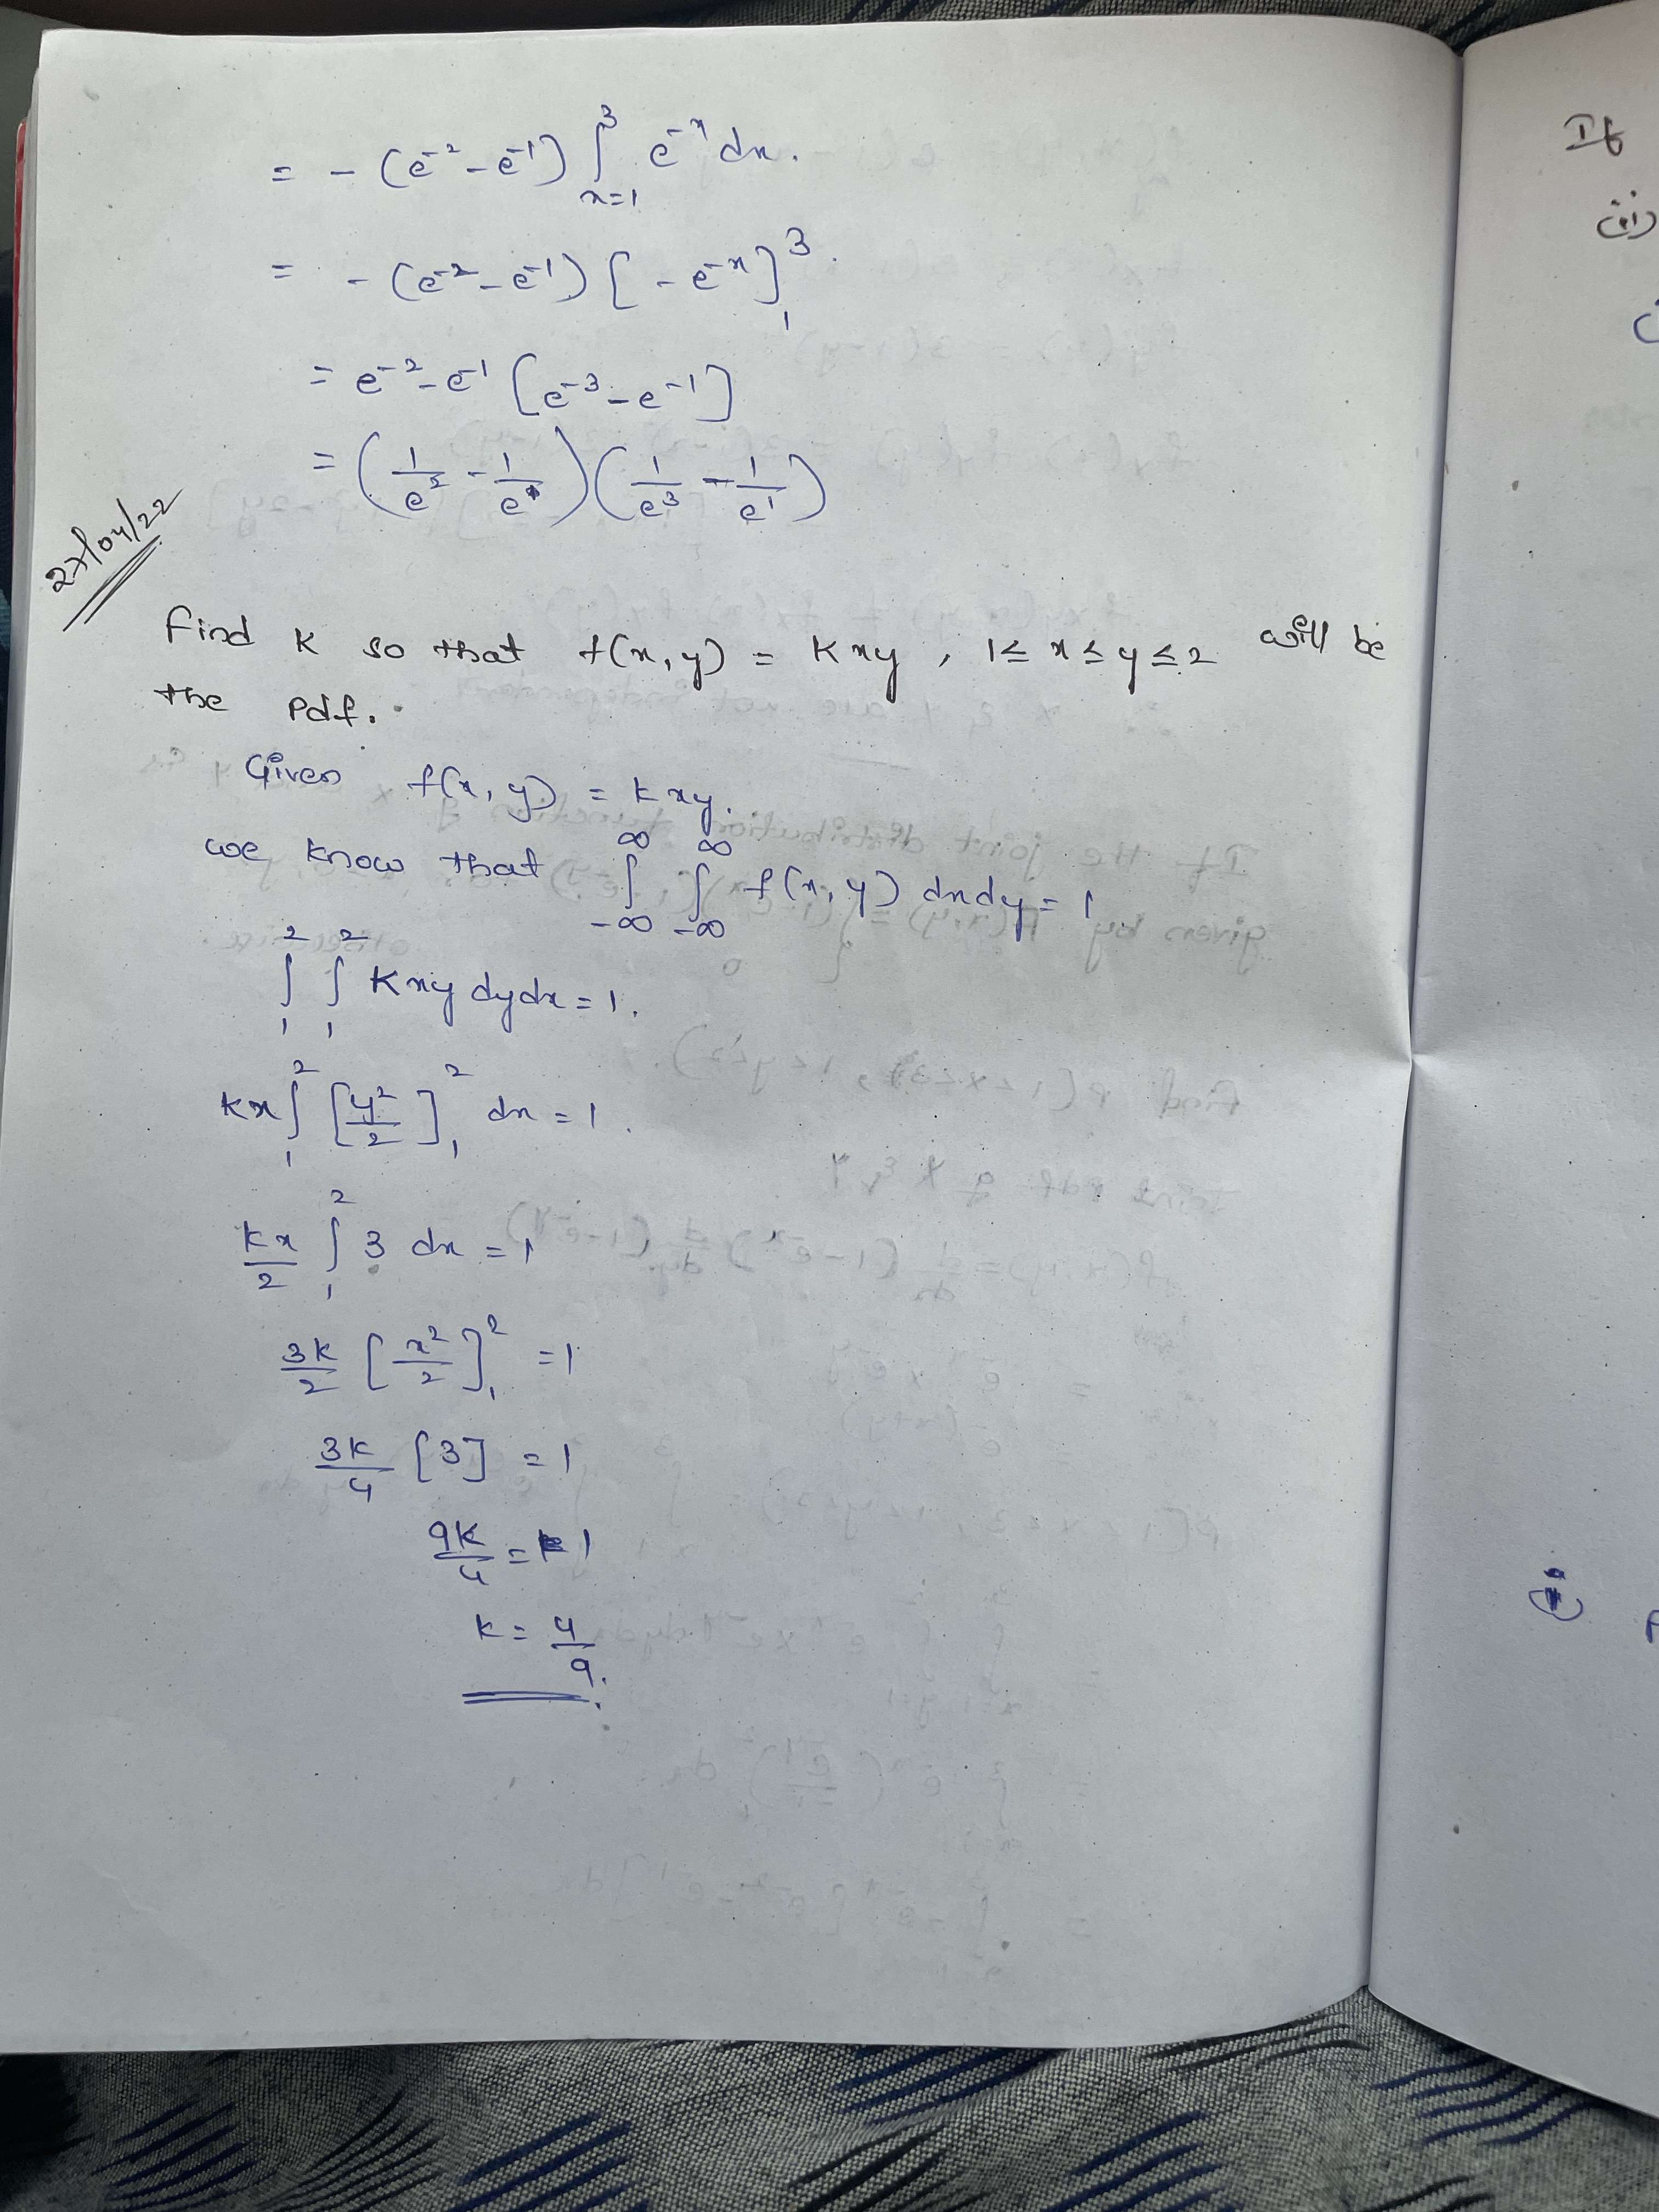 = - (e⁻² - e⁻¹) ∫_{x=1}^{3} e⁻ˣ dx.
= - (e⁻² - e⁻¹) [ - e⁻ˣ ]₁³.
= e⁻² - e⁻¹ [ e⁻³ - e⁻¹ ]
= ( 1/e² - 1/e ) ( 1/e³ - 1/e¹ )
27/04/22
Find K so that f(x, y) = K xy , 1 ≤ x ≤ y ≤ 2 will be
the Pdf.
Given f(x, y) = k xy.
we know that ∫_{-∞}^{∞} ∫_{-∞}^{∞} f(x, y) dxdy = 1
∫₁² ∫₁² K xy dy dx = 1.
kx ∫₁² [ y²/2 ]₁² dx = 1.
kx/2 ∫₁² 3 dx = 1
3k/2 [ x²/2 ]₁² = 1
3k/4 [3] = 1
9k/4 = 1
k = 4/9.
If